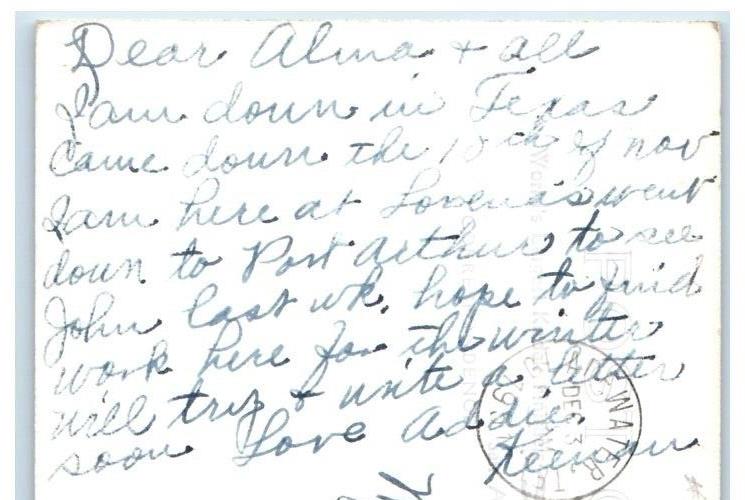 Dear Alma + all
I am down in Texas
Came down the 18th of nov
I am here at Lovena's went
down to Port Arthur to see
John last wk. hope to find
work here for the winter
will try & write a letter
soon Love Addie
Keenan
DEC 3